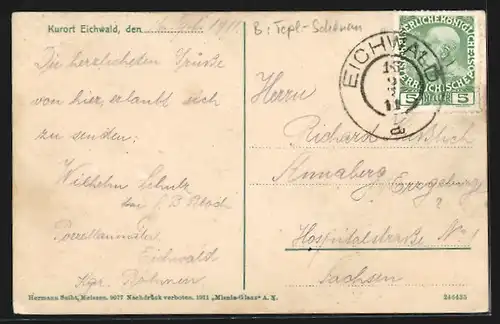 Kurort Eichwald, den Juli 1911.
B: Tepl-Schönau
Die herzlichsten Grüße
von hier, erlaubt sich
zu senden;
Wilhelm Schulz
Porzellanmaler
Eichwald
Kgr. Böhmen
EICHWALD
KAISERLICHE KÖNIGLICHE
ÖSTERREICHISCHE POST
5 HELLER 5
Herrn
Richard
Annaberg Erzgebirg
Hospitalstraße No 1
Sachsen
Hermann Seibt, Meissen. 9077 Nachdruck verboten. 1911 „Mienia-Glanz“ A. X.
246435